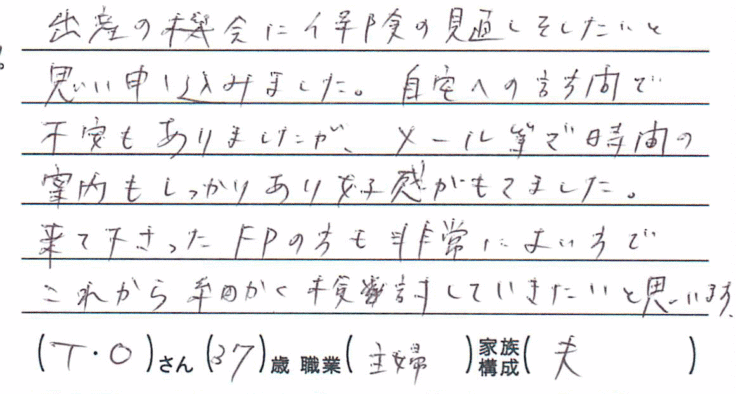 出産の機会に保険の見直しをしたいと
思い申し込みました。自宅への訪問で
不安もありましたが、メール等で時間の
案内もしっかりあり好感がもてました。
来て下さったFPの方も非常によい方で
これから細かく検討していきたいと思います。
(T・O)さん(37)歳 職業(主婦)家族構成(夫)